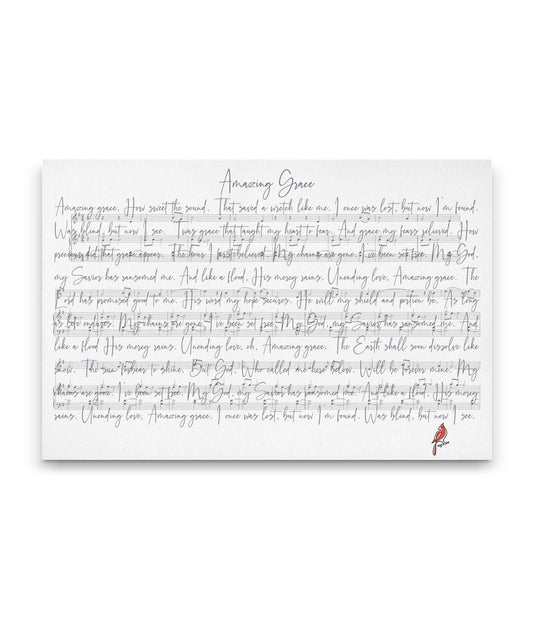 Amazing Grace
Amazing grace, How sweet the sound. That saved a wretch like me. I once was lost, but now I'm found.
Was blind, but now I see. 'Twas grace that taught my heart to fear. And grace my fears relieved. How
precious did that grace appear. The hour I first believed. My chains are gone. I've been set free. My God,
my Savior has ransomed me. And like a flood, His mercy rains. Unending love, Amazing grace. The
Lord has promised good to me. His word my hope secures. He will my shield and portion be. As long
as life endures. My chains are gone, I've been set free. My God, my Savior has ransomed me. And
like a flood His mercy rains. Unending love, oh, Amazing grace. The Earth shall soon dissolve like
snow. The sun forbear to shine. But God, Who called me here below. Will be forever mine. My
chains are gone. I've been set free. My God, my Savior has ransomed me. And like a flood. His mercy
rains. Unending love, Amazing grace. I once was lost, but now I'm found. Was blind, but now I see.